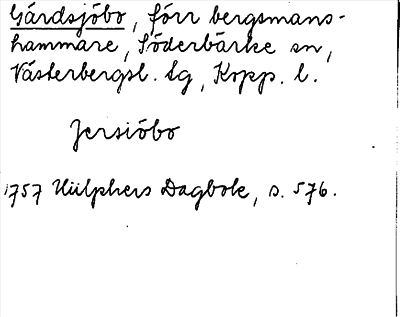 Gårdsjöbo, förr bergsmans-
hammare, Söderbärke sn,
Västerbergsl. Lg, Kopp. l.
Jersiöbo
1757 Hülphers Dagbok, s. 576.